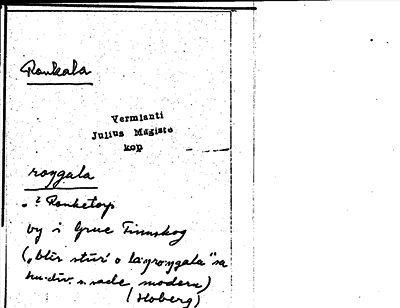 Ronkala
Vermlanti
Julius Mägiste
kop.
roŋgala
? Ronketorp
by i Grue Finnskog
("blir stur o laŋroŋgala" sa
modern)
(Moberg)